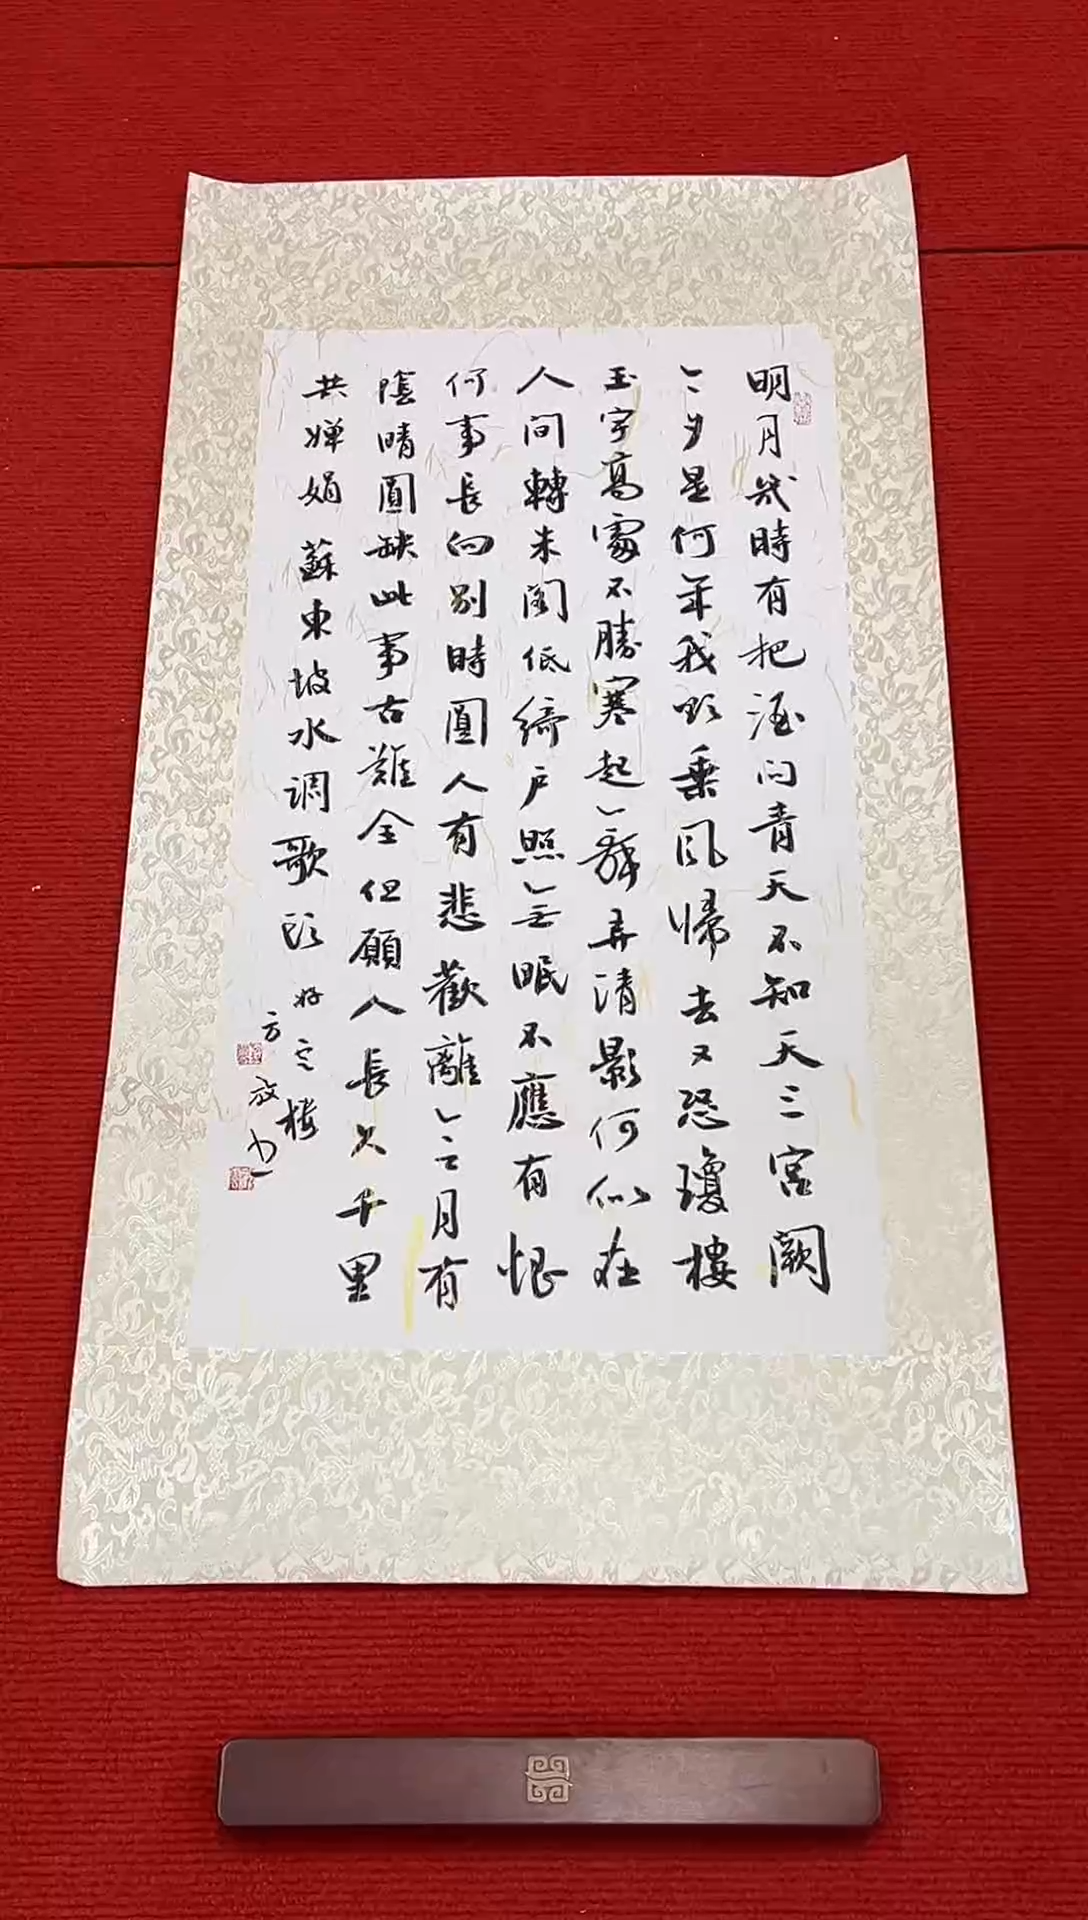 明月幾時有把酒問青天不知天上宮闕
今夕是何年我欲乘風歸去又恐瓊樓
玉宇高處不勝寒起舞弄清影何似在
人間轉朱閣低綺戶照無眠不應有恨
何事長向別時圓人有悲歡離合月有
陰晴圓缺此事古難全但願人長久千里
共嬋娟 蘇東坡水調歌頭
方 放 書